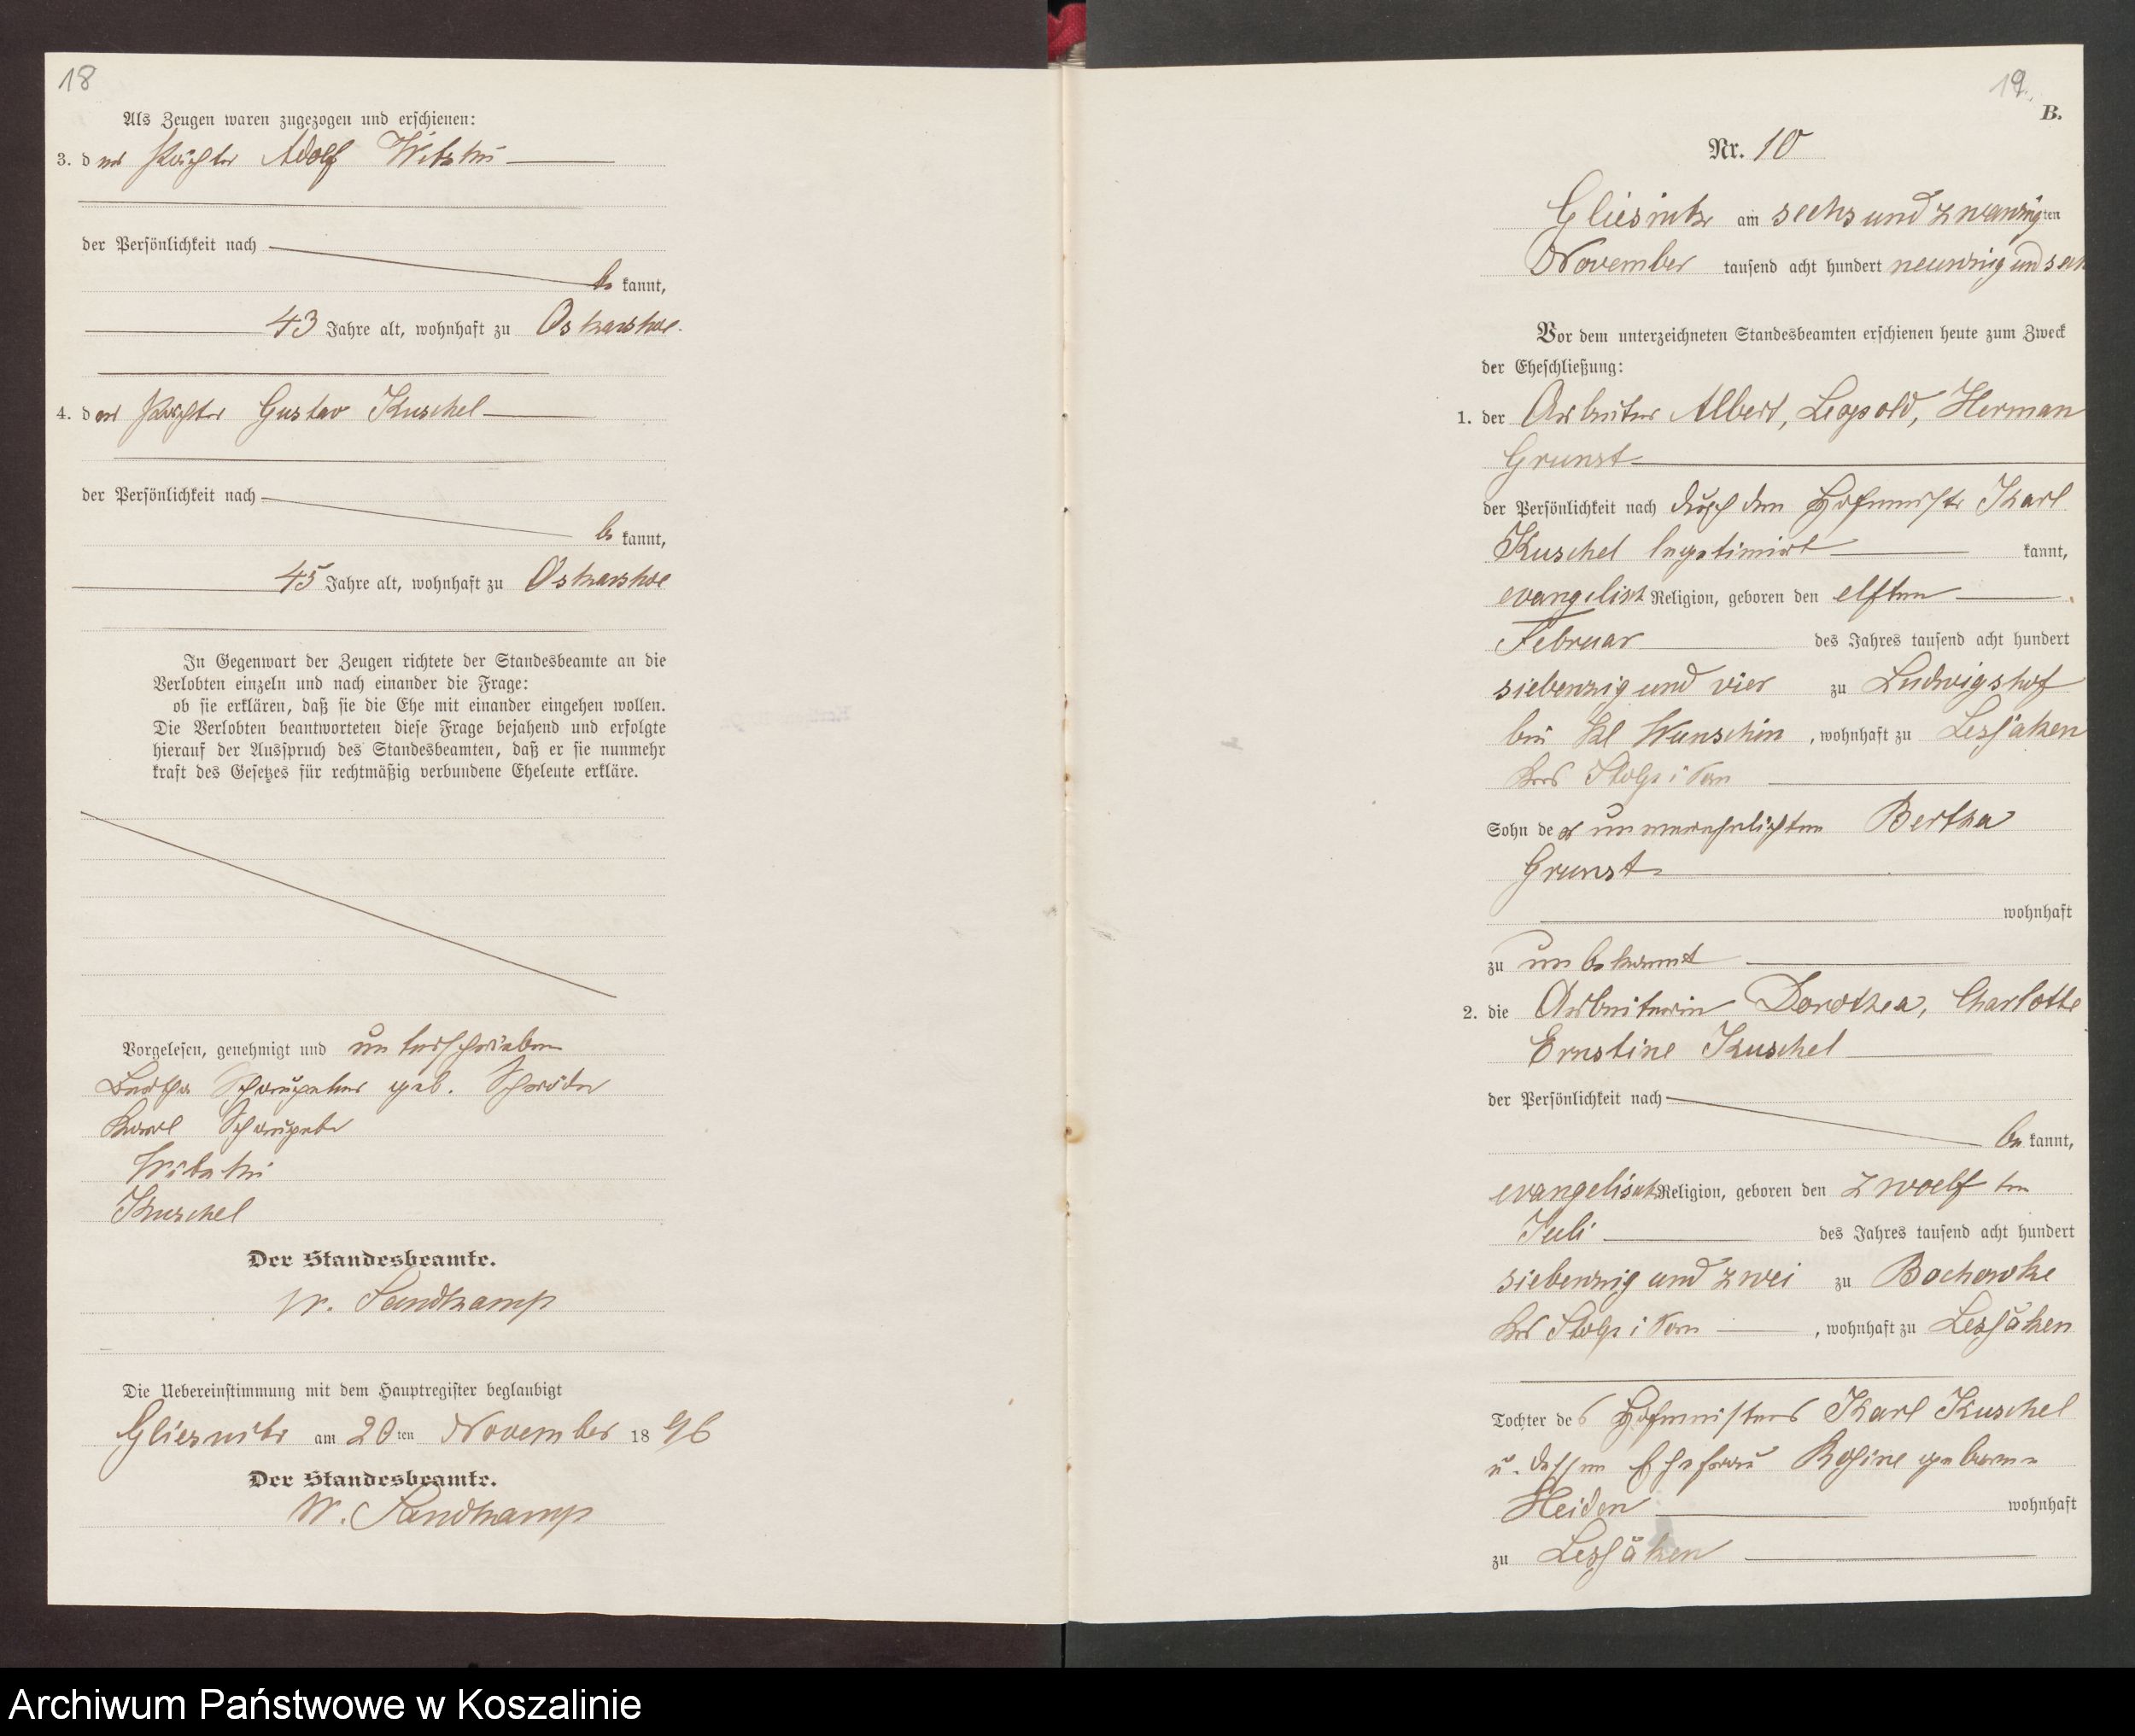 18
Als Zeugen waren zugezogen und erschienen:
3. der Pächter Adolf Witzki
der Persönlichkeit nach
be kannt,
43 Jahre alt, wohnhaft zu Oskarshöe.
4. der Pächter Gustav Kuschel
der Persönlichkeit nach
be kannt,
45 Jahre alt, wohnhaft zu Oskarshöe
In Gegenwart der Zeugen richtete der Standesbeamte an die
Verlobten einzeln und nach einander die Frage:
ob sie erklären, daß sie die Ehe mit einander eingehen wollen.
Die Verlobten beantworteten diese Frage bejahend und erfolgte
hierauf der Ausspruch des Standesbeamten, daß er sie nunmehr
kraft des Gesetzes für rechtmäßig verbundene Eheleute erkläre.
Vorgelesen, genehmigt und unterschrieben
geb. Schröder
Karl
Kuschel
Der Standesbeamte.
W. Sandkamp
Die Uebereinstimmung mit dem Hauptregister beglaubigt
Gliesnitz am 20ten November 1896
Der Standesbeamte.
W. Sandkamp
19.
B.
Nr. 10
Gliesnitz am sechsundzwanzigten
November tausend acht hundert neunzig und sech
Vor dem unterzeichneten Standesbeamten erschienen heute zum Zweck
der Eheschließung:
1. der Arbeiter Albert, Leopold, Herman
Grunst
der Persönlichkeit nach durch den Hofmeister Karl
Kuschel legetimirt kannt,
evangelisch Religion, geboren den elften
Februar des Jahres tausend acht hundert
siebenzig und vier zu Ludwigshof
bei Kl Wunschin, wohnhaft zu Lessaken
Krs Stolp i Pom
Sohn der unverehelichten Bertha
Grunst
wohnhaft
zu unbekannt
2. die Arbeiterin Dorothea, Charlotte
Ernstine Kuschel
der Persönlichkeit nach
be kannt,
evangelisch Religion, geboren den zwoelf ten
Juli des Jahres tausend acht hundert
siebenzig und zwei zu Bochowke
Krs Stolp i Pom, wohnhaft zu Lessaken
Tochter des Hofmeisters Karl Kuschel
u. dessen Ehefrau Rosine geborene
Heiden wohnhaft
zu Lessaken
Archiwum Państwowe w Koszalinie